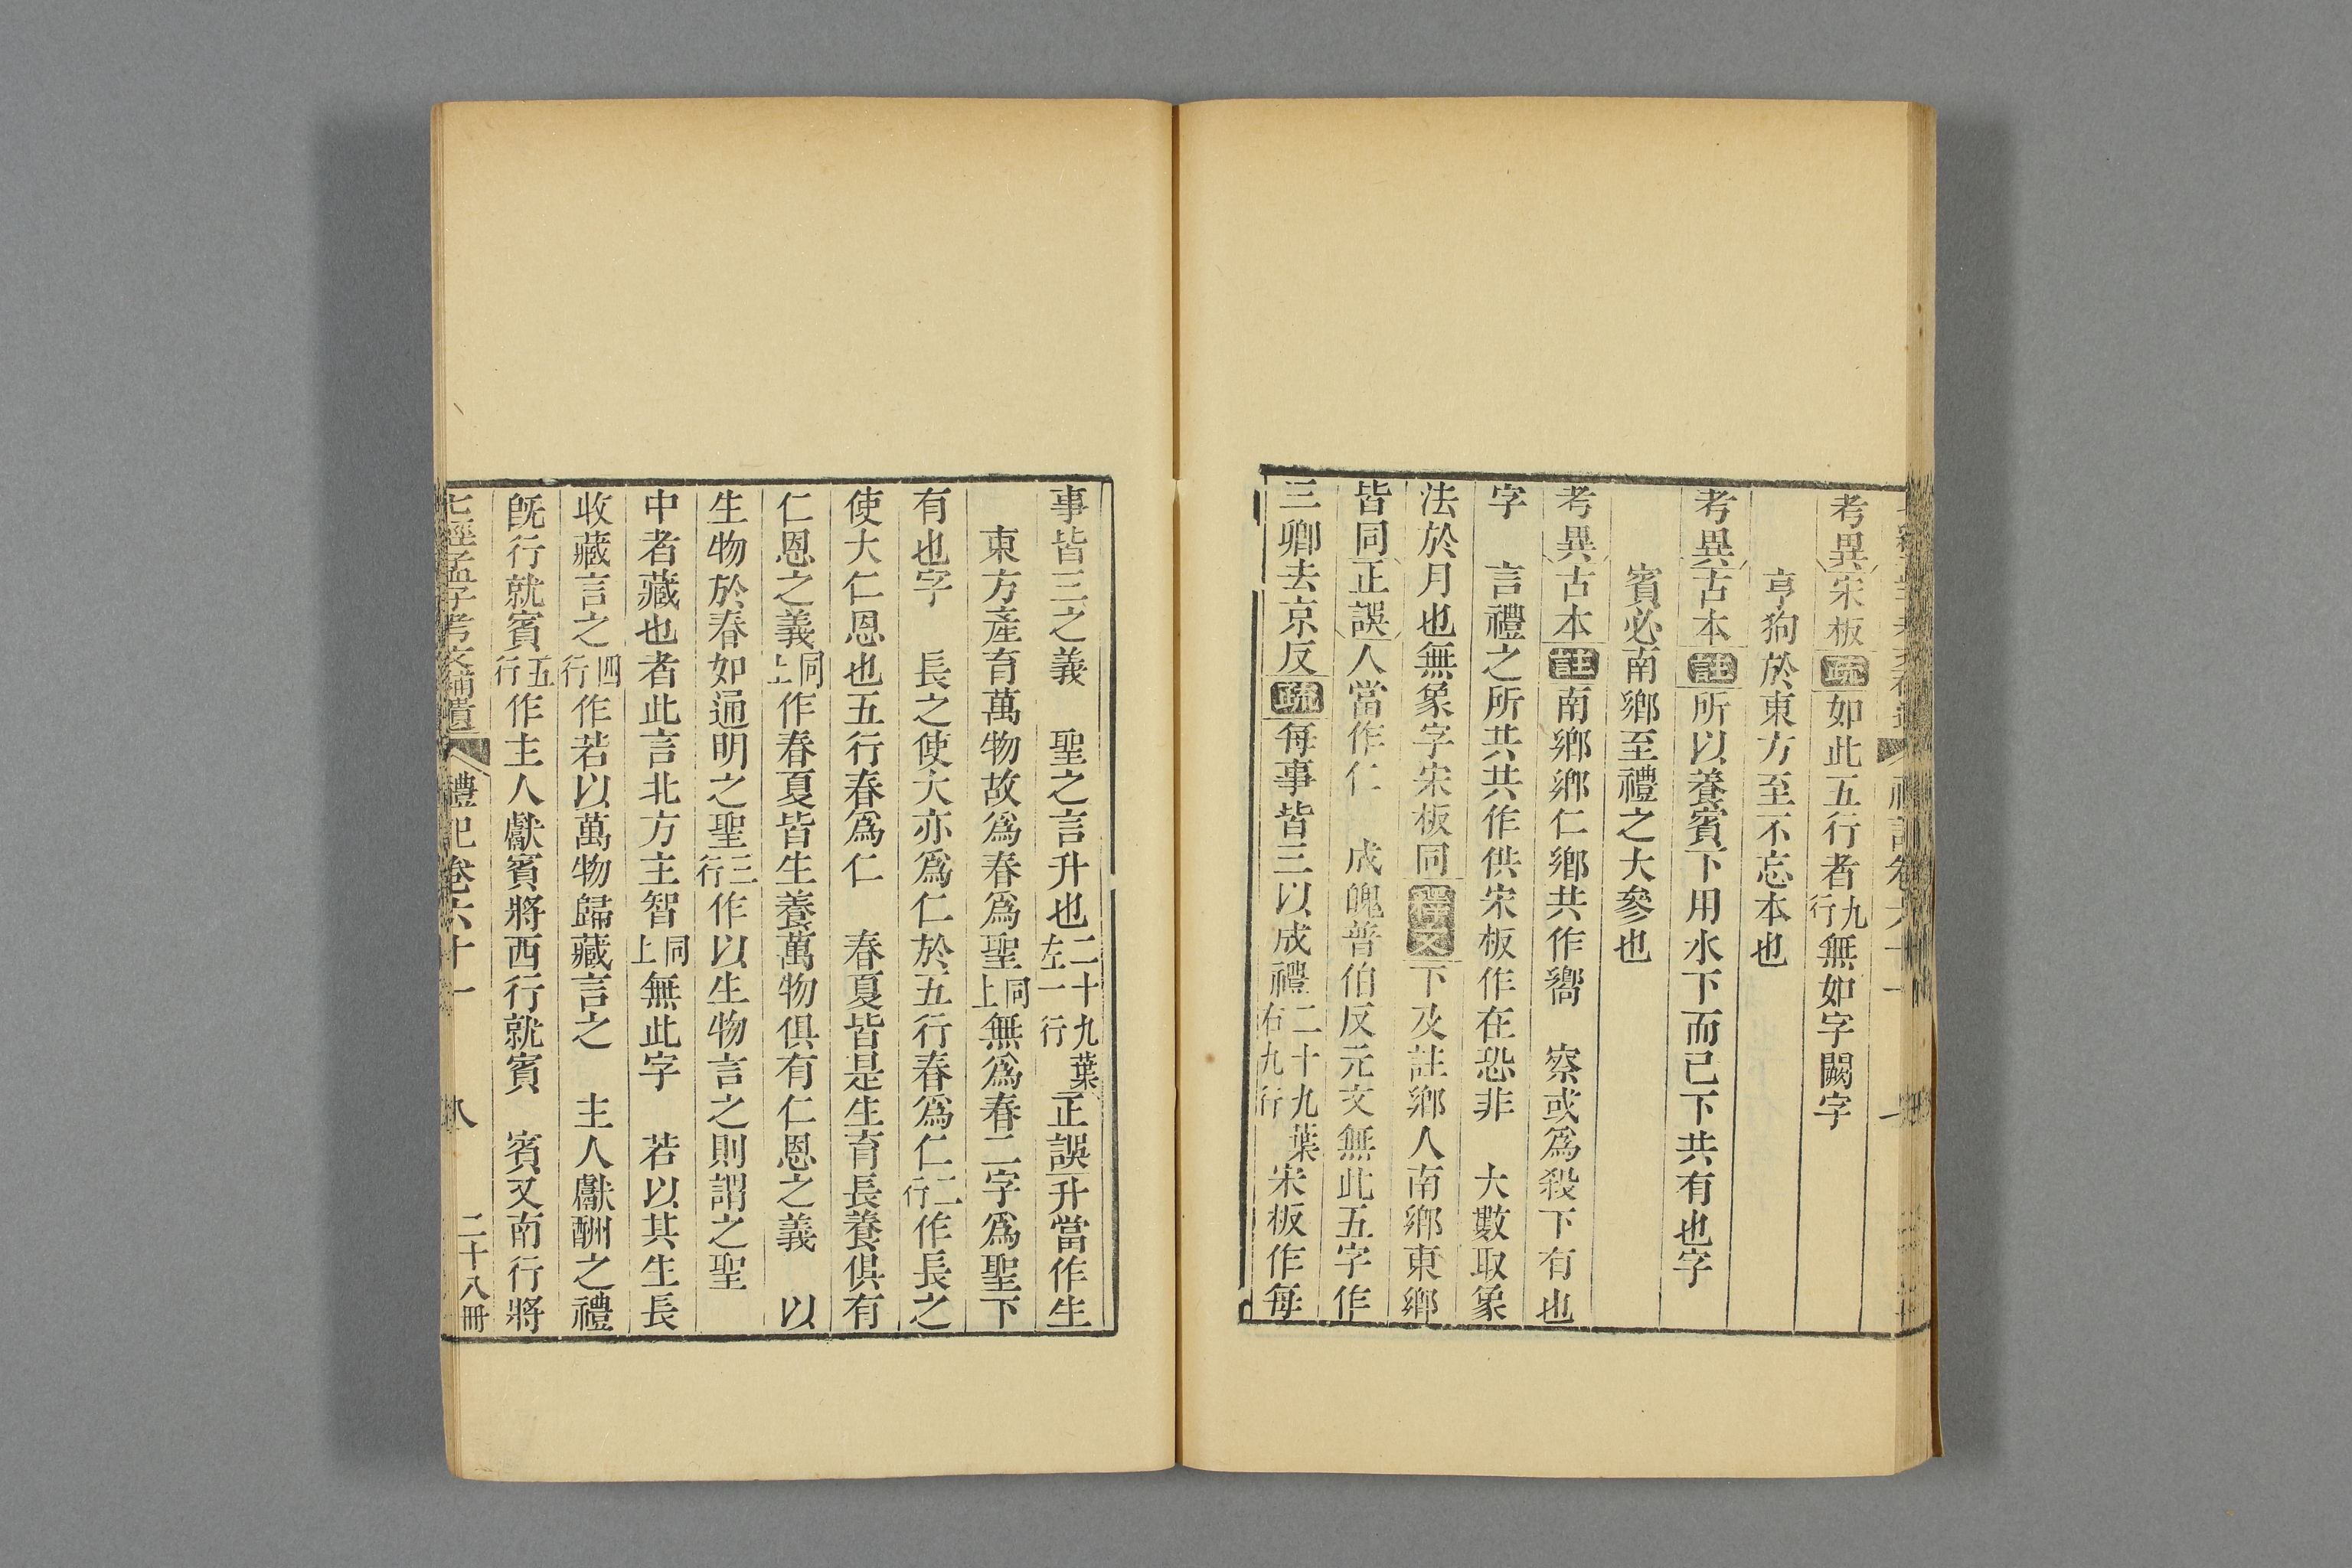 考異宋板疏如此五行者九行無如字闕字
亨狗於東方至不忘本也
考異古本註所以養賓下用水下而已下共有也字
賓必南鄉至禮之大參也
考異古本註南鄉鄉仁鄉共作嚮　察或爲殺下有也
字　言禮之所共共作供宋板作在恐非　大數取象
法於月也無象字宋板同釋文下及註鄉人南鄉東鄉
皆同正誤人當作仁　成魄普伯反元文無此五字作
三卿去京反疏每事皆三以成禮二十九葉右九行宋板作每
事皆三之義　聖之言升也二十九葉左一行正誤升當作生
東方產育萬物故爲春爲聖同上無爲春二字爲聖下
有也字　長之使大亦爲仁於五行春爲仁二行作長之
使大仁恩也五行春爲仁　春夏皆是生育長養俱有
仁恩之義同上作春夏皆生養萬物俱有仁恩之義　以
生物於春如通明之聖三行作以生物言之則謂之聖
中者藏也者此言北方主智同上無此字　若以其生長
收藏言之四行作若以萬物歸藏言之　主人獻酬之禮
既行就賓五行作主人獻賓將西行就賓　賓又南行將
七經孟子考文補遺　禮記卷六十一　八　二十八冊